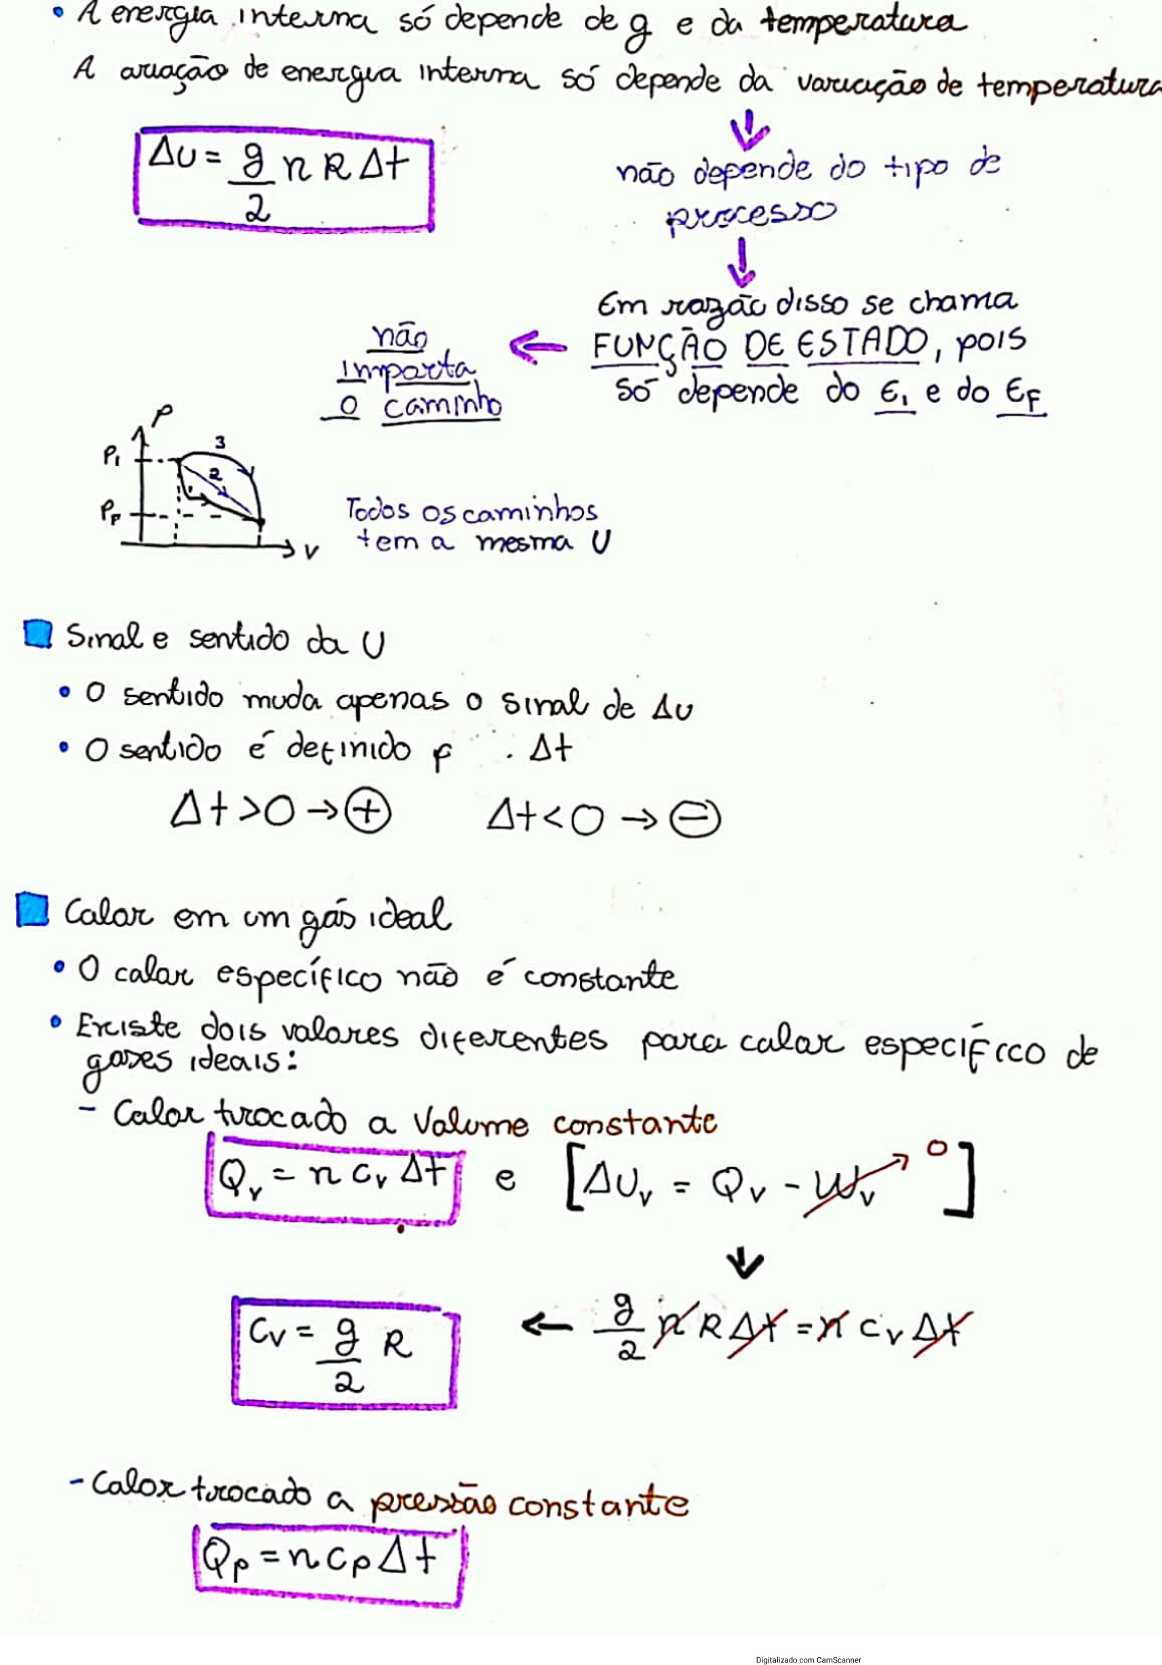 • A energia interna só depende de g e da temperatura
A ariação de energia interna só depende da variação de temperatura
ΔU = g/2 n R Δt
não depende do tipo de
processo
Em razão disso se chama
FUNÇÃO DE ESTADO, pois
só depende do Ei e do EF
não
importa
o caminho
P
Pi
3
2
PF
V
Todos os caminhos
tem a mesma U
Sinal e sentido da U
• O sentido muda apenas o sinal de ΔU
• O sentido é definido p . Δt
Δt>0 → + Δt<0 → −
Calor em um gás ideal
• O calor específico não é constante
• Existe dois valores diferentes para calor específico de
gases ideais:
- Calor trocado a Volume constante
Qv = n cv Δt e [ΔUv = Qv - Wv → 0]
cv = g/2 R ← g/2 n R Δt = n cv Δt
- Calor trocado a pressão constante
Qp = n cp Δt
Digitalizado com CamScanner